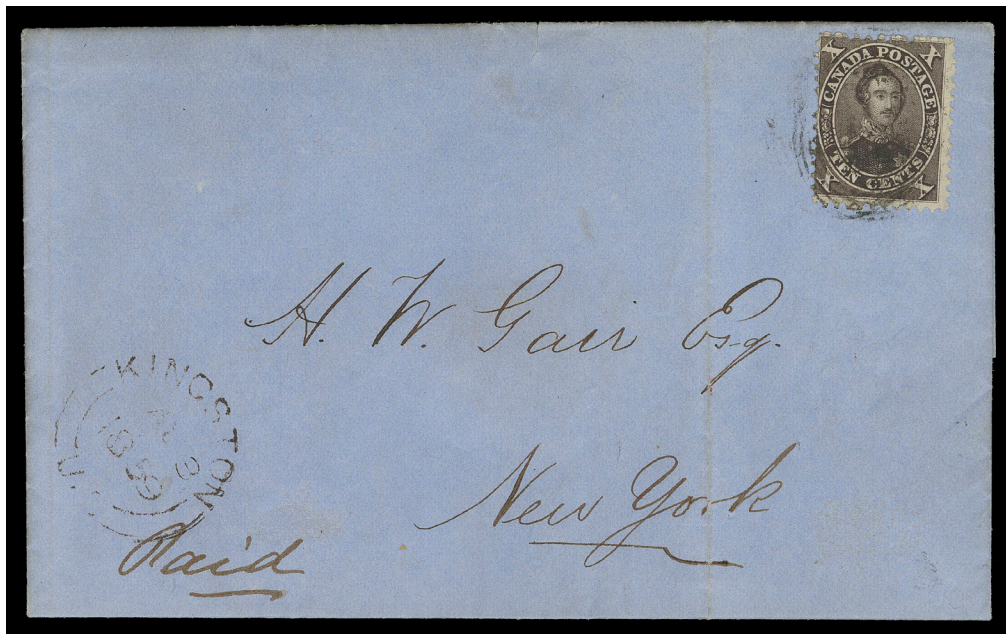 X X
CANADA POSTAGE
TEN CENTS
X X
H. W. Gair Esq.
New York
KINGSTON
Paid